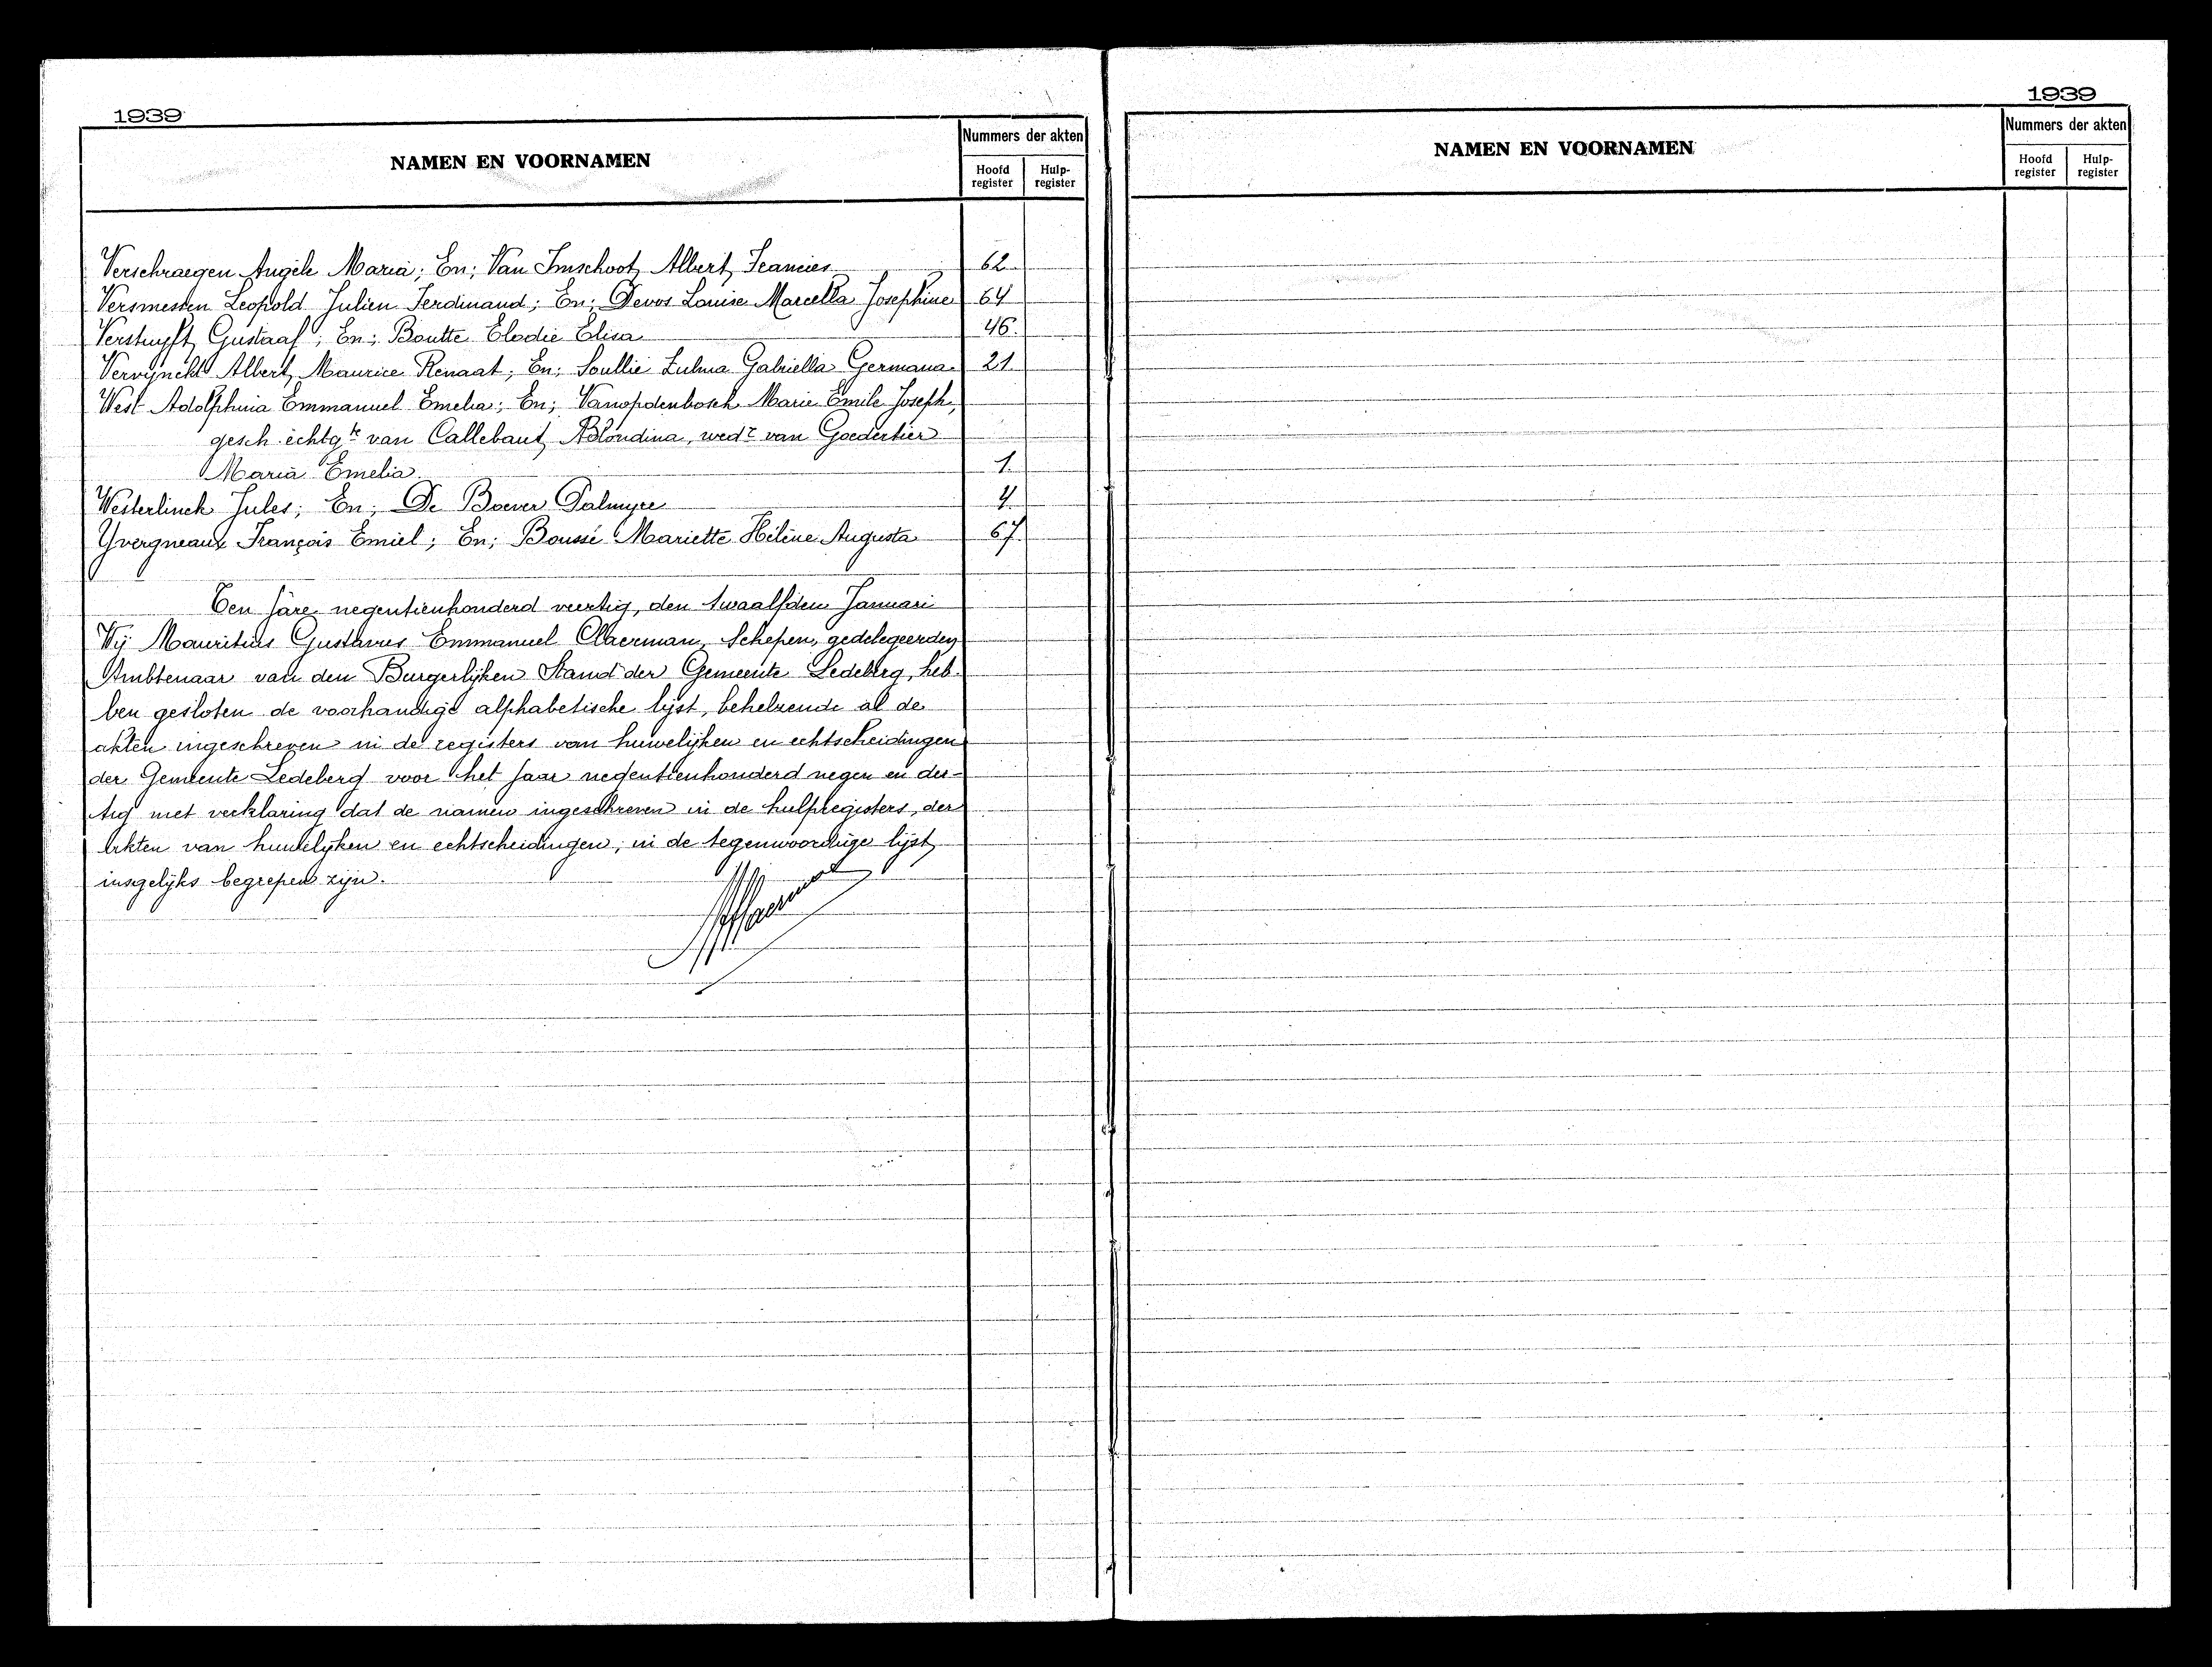 1939
NAMEN EN VOORNAMEN
Nummers der akten
Hoofd register
Hulp-register
Verschraegen Angèle Maria; En; Van Imschoot Albert Francies 62
Versmessen Leopold Julien Ferdinand; En; Devos Louise Marcella Josephine 64
Verstuyft Gustaaf; En; Boutte Elodie Elisa 46.
Vervynckt Albert Maurice Renaat; En; Soullie Zulma Gabriella Germana 21.
West Adolphina Emmanuel Emelia; En; Vanopdenbosch Marie Emile Joseph,
gesch. echtg.te van Callebaut Blondina, wed.r van Goedertier
Maria Emelia. 1.
Westerlinck Jules; En; De Boever Palmyre 4.
Yvergneaux François Emiel; En; Boussé Mariette Hélène Augusta 67.
Ten jare negentienhonderd veertig, den twaalfden Januari
Wij Mauritius Gustavus Emmanuel Claerman, Schepen, gedelegeerden
Ambtenaar van den Burgerlijken Stand der Gemeente Ledeberg, heb-
ben gesloten de voorhandige alphabetische lijst, behelzende al de
akten ingeschreven in de registers van huwelijken en echtscheidingen
der Gemeente Ledeberg voor het jaar negentienhonderd negen en der-
tig met verklaring dat de namen ingeschreven in de hulpregisters, der
akten van huwelijken en echtscheidingen, in de tegenwoordige lijst
insgelijks begrepen zijn.
1939
NAMEN EN VOORNAMEN
Nummers der akten
Hoofd register
Hulp-register